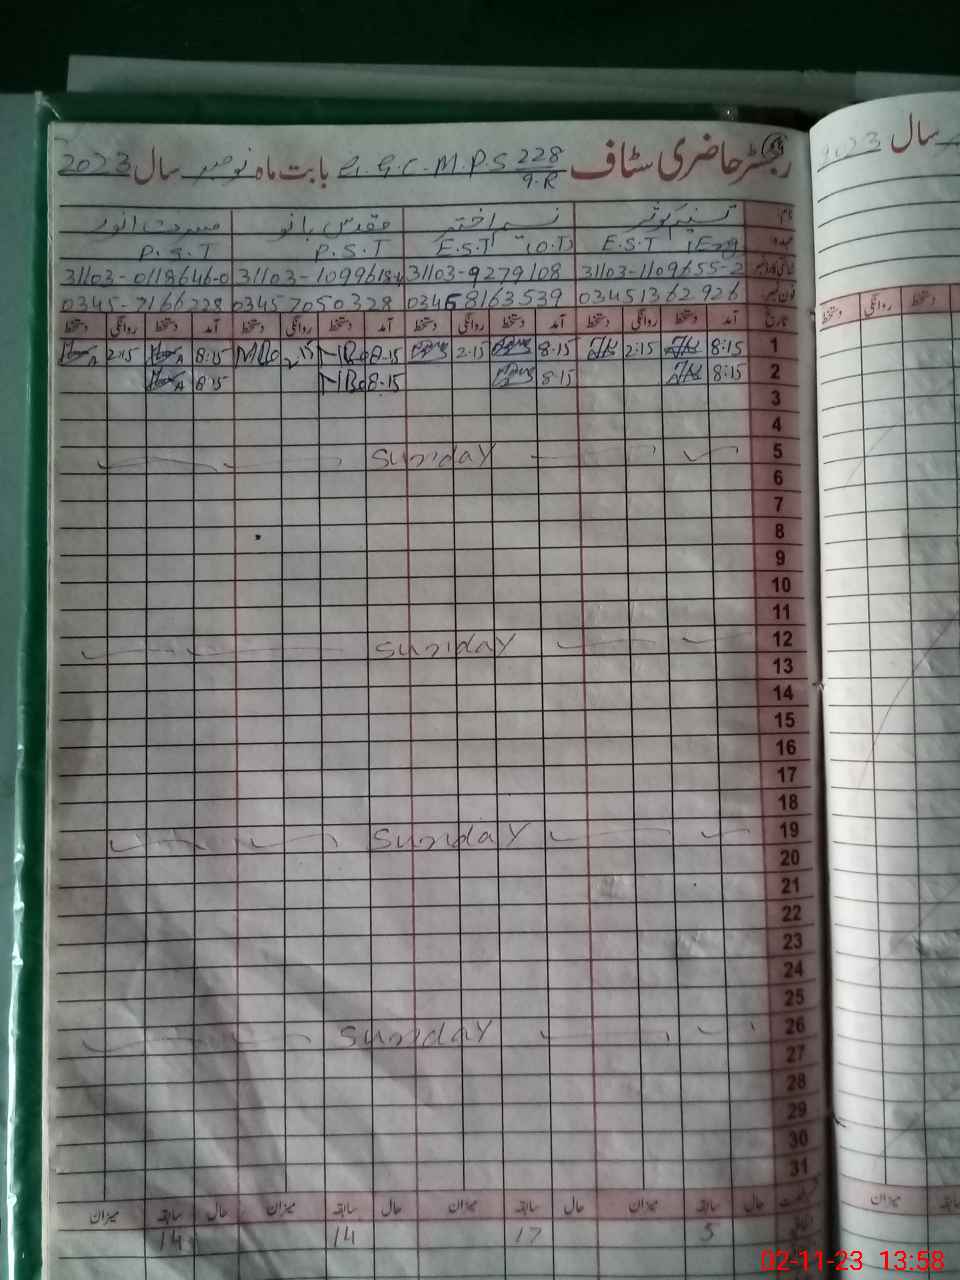 رجسٹر حاضری سٹاف G.G.C.M.P.S 228/9.R بابت ماہ نومبر سال 2023
سال 2023
نام تسنیم کوثر نسیم اختر مقدس بانو مسرت انور
عہدہ E.S.T (Eng) E.S.T (O.T) P.S.T P.S.T
31103-1109655-2 31103-9279108 31103-1099618-4 31103-0118646-0
فون نمبر 03451362926 03468163539 03457050328 0345-7166228
تاریخ آمد دستخط روانگی دستخط آمد دستخط روانگی دستخط آمد دستخط روانگی دستخط آمد دستخط روانگی دستخط
دستخط روانگی دستخط
1 8:15 2:15 8-15 2-15 8-15 2-15 8:15 2:15
2 8:15 8-15 8-15 8:15
3
4
5 Sunday
6
7
8
9
10
11
12 Sunday
13
14
15
16
17
18
19 Sunday
20
21
22
23
24
25
26 Sunday
27
28
29
30
31
حال سابقہ میزان حال سابقہ میزان حال سابقہ میزان حال سابقہ میزان
میزان
5 17 14 14
02-11-23 13:58